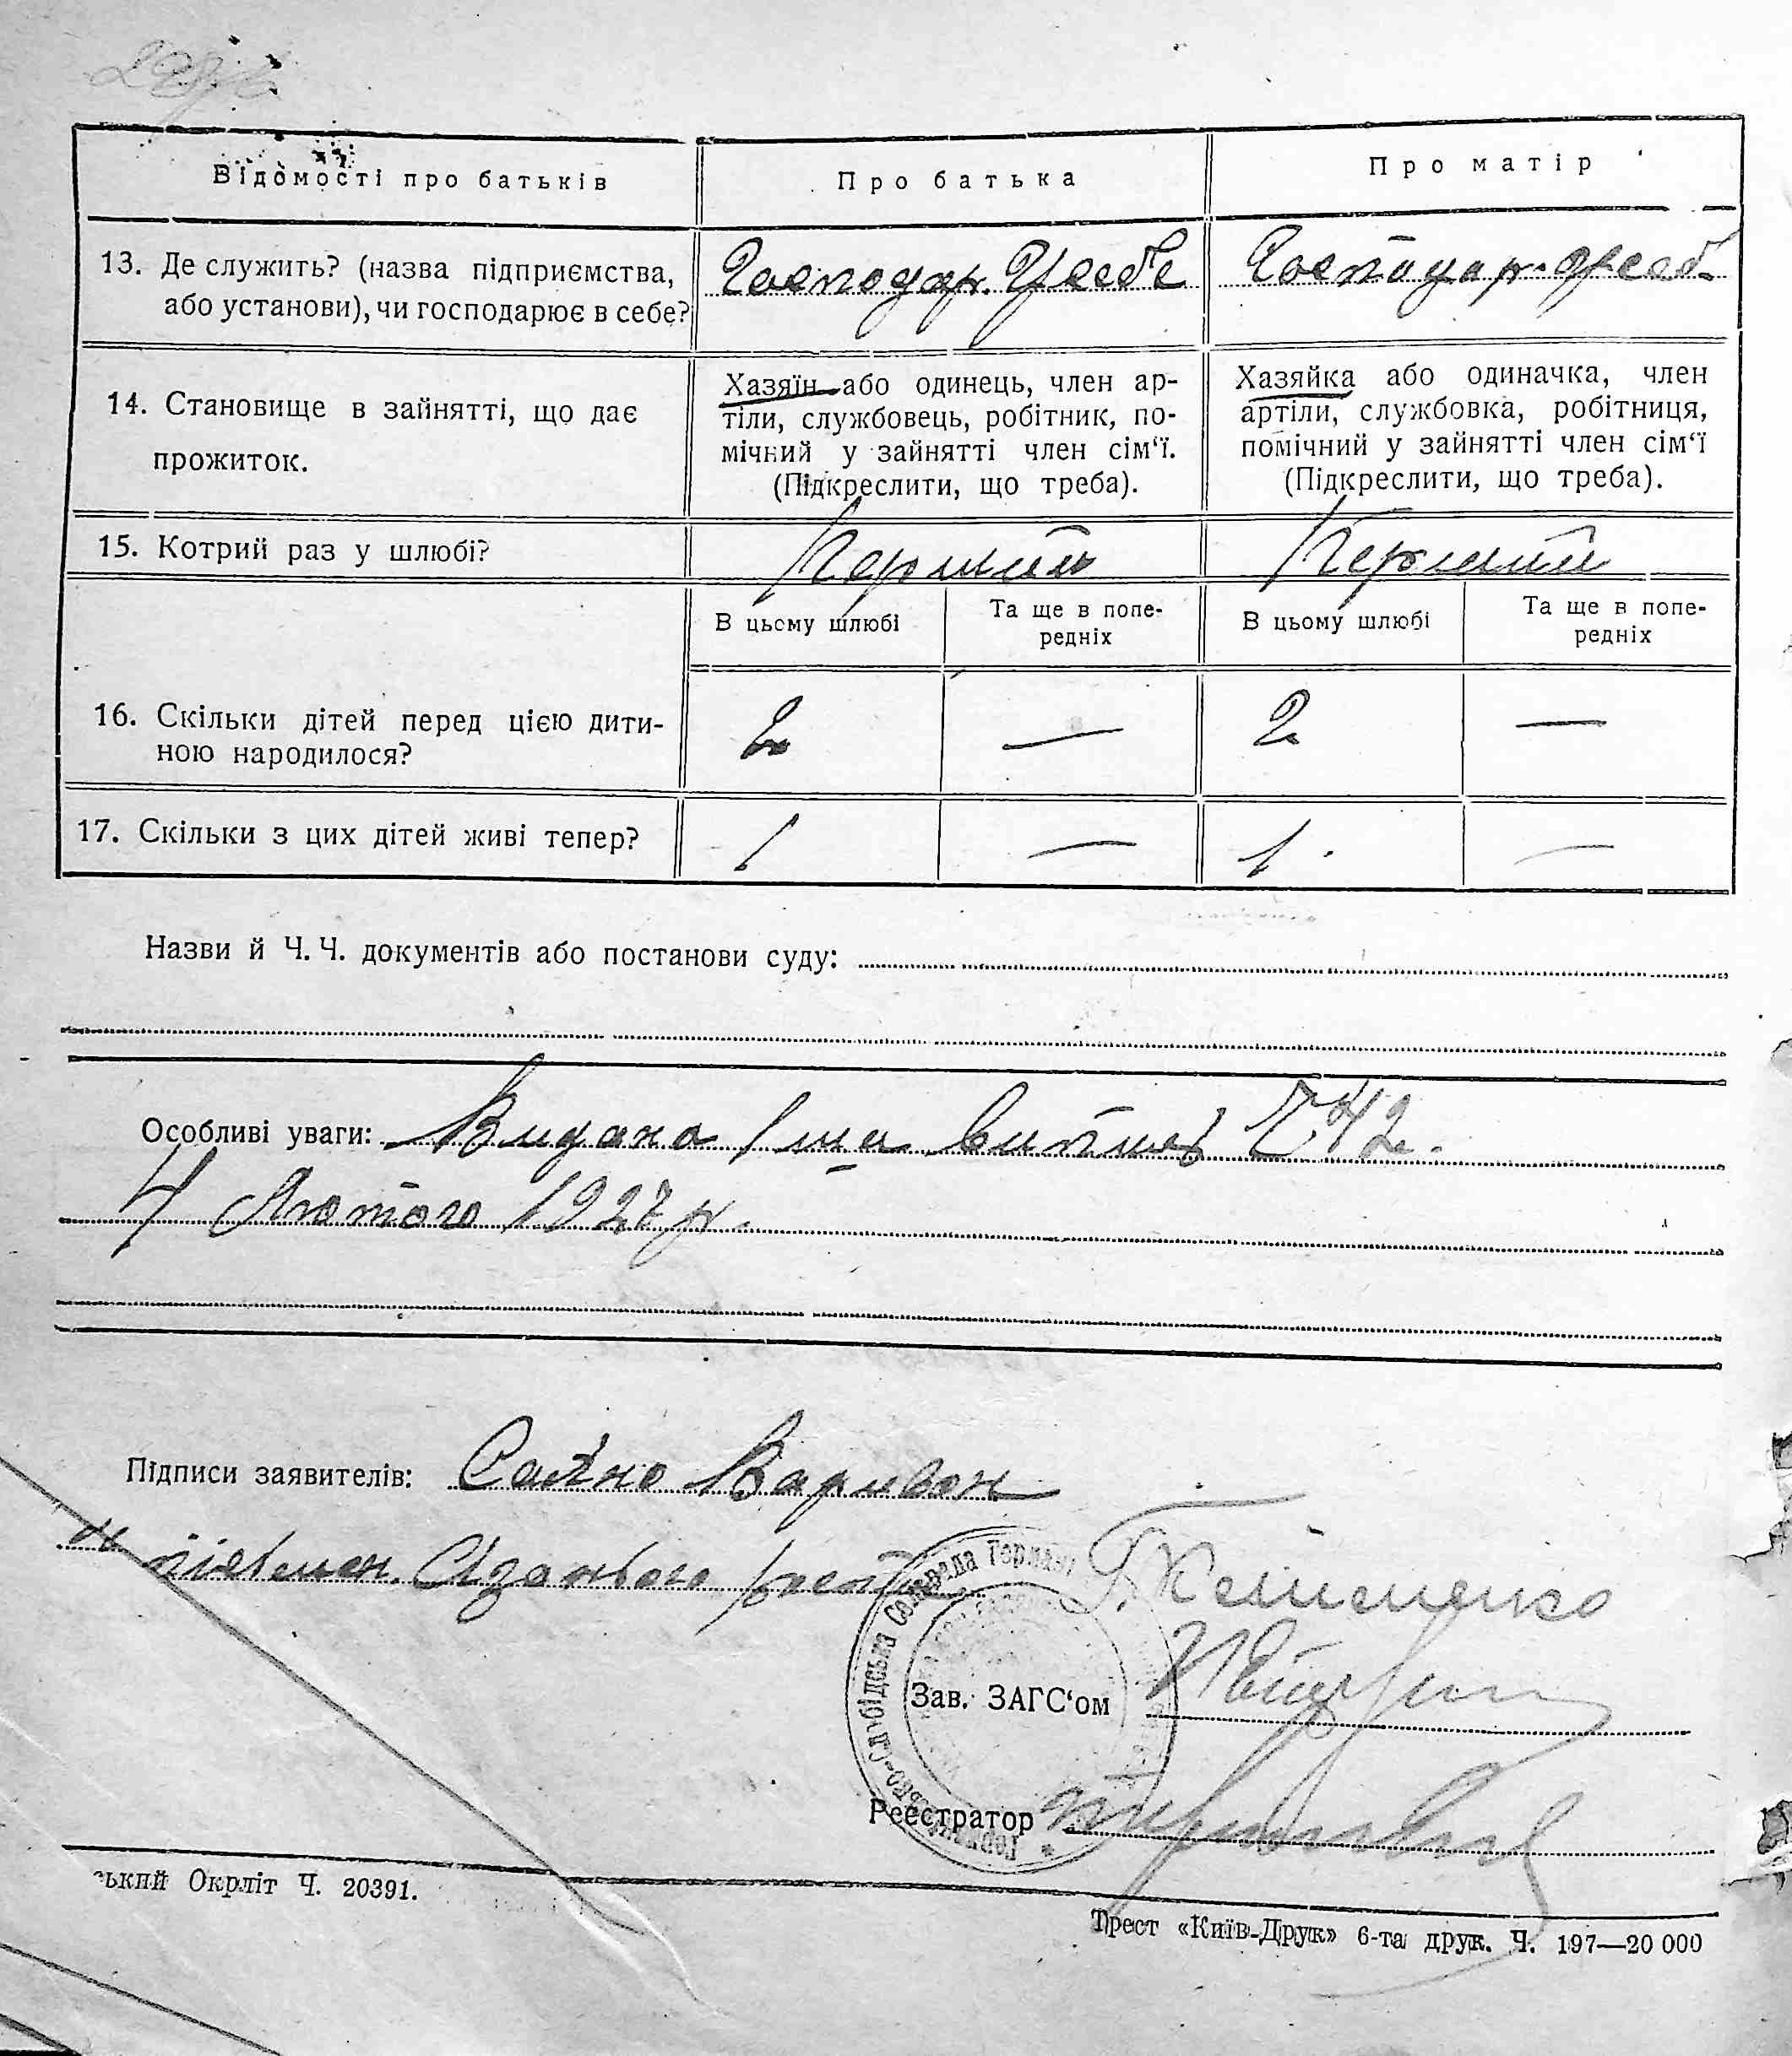 Відомості про батьків
Про батька
Про матір
13. Де служить? (назва підприємства,
або установи), чи господарює в себе?
Господар. у себе
Господар. у себ.
14. Становище в зайнятті, що дає
прожиток.
Хазяїн або одинець, член ар-
тіли, службовець, робітник, по-
мічний у зайнятті член сім‘ї.
(Підкреслити, що треба).
Хазяйка або одиначка, член
артіли, службовка, робітниця,
помічний у зайнятті член сім‘ї
(Підкреслити, що треба).
15. Котрий раз у шлюбі?
Перший
Перший
В цьому шлюбі
Та ще в попе-
редніх
В цьому шлюбі
Та ще в попе-
редніх
16. Скільки дітей перед цією дити-
ною народилося?
2 — 2 —
17. Скільки з цих дітей живі тепер?
1 — 1. —
Назви й Ч. Ч. документів або постанови суду:
Особливі уваги: Видана випись Ч 42.
4 Лютого 1927 р.
Підписи заявителів:
Зав. ЗАГС‘ом
Реєстратор
ський Окрліт Ч. 20391.
Трест «Київ-Друк» 6-та друк. Ч. 197—20 000